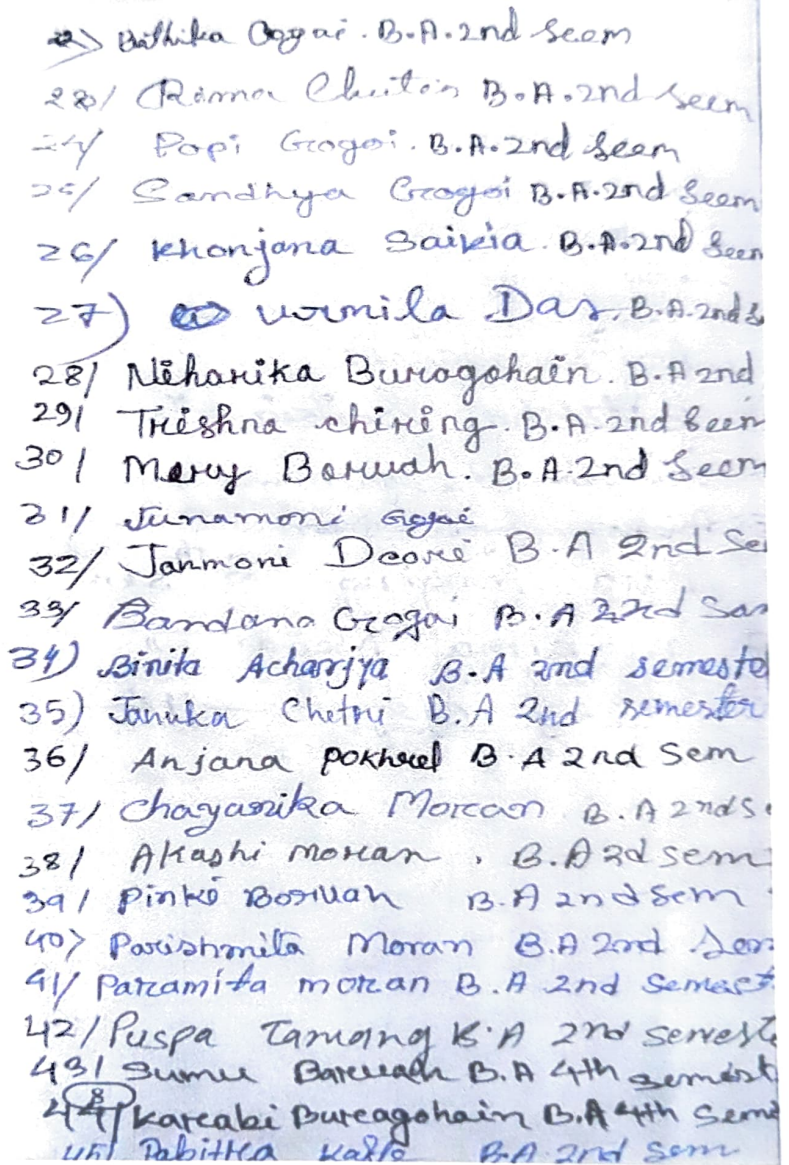 22) Bithika Gogoi. B.A. 2nd Seem
23/ Rima Chutia B.A. 2nd Seem
24/ Popi Gogoi. B.A. 2nd Seem
25/ Sandhya Gogoi B.A. 2nd Seem
26/ Khonjana Saikia. B.A. 2nd Seem
27) Urmila Das. B.A. 2nd S
28/ Niharika Buragohain. B.A 2nd
29/ Trishna chiring. B.A. 2nd Seem
30/ Mary Boruah. B.A. 2nd Seem
31/ Junamoni Gogoi
32/ Janmoni Deori B.A 2nd Se
33/ Bandana Gogoi B.A 2nd Sem
34) Binita Acharjya B.A 2nd semeste
35) Januka Chetri B.A 2nd semester
36/ Anjana Pokhrel B.A 2nd Sem
37/ Chayanika Moran B.A 2nd S
38/ Akashi Moran, B.A 2d sem
39/ Pinki Boruah B.A 2nd Sem
40) Parishmita Moran B.A 2nd Sem
41/ Paramita moran B.A 2nd Semest
42/ Puspa Tamang B.A 2nd semest
43/ Sumu Baruah B.A 4th semest
44/ Karabi Buragohain B.A 4th Sem
45/ Pabitra B.A 2nd Sem